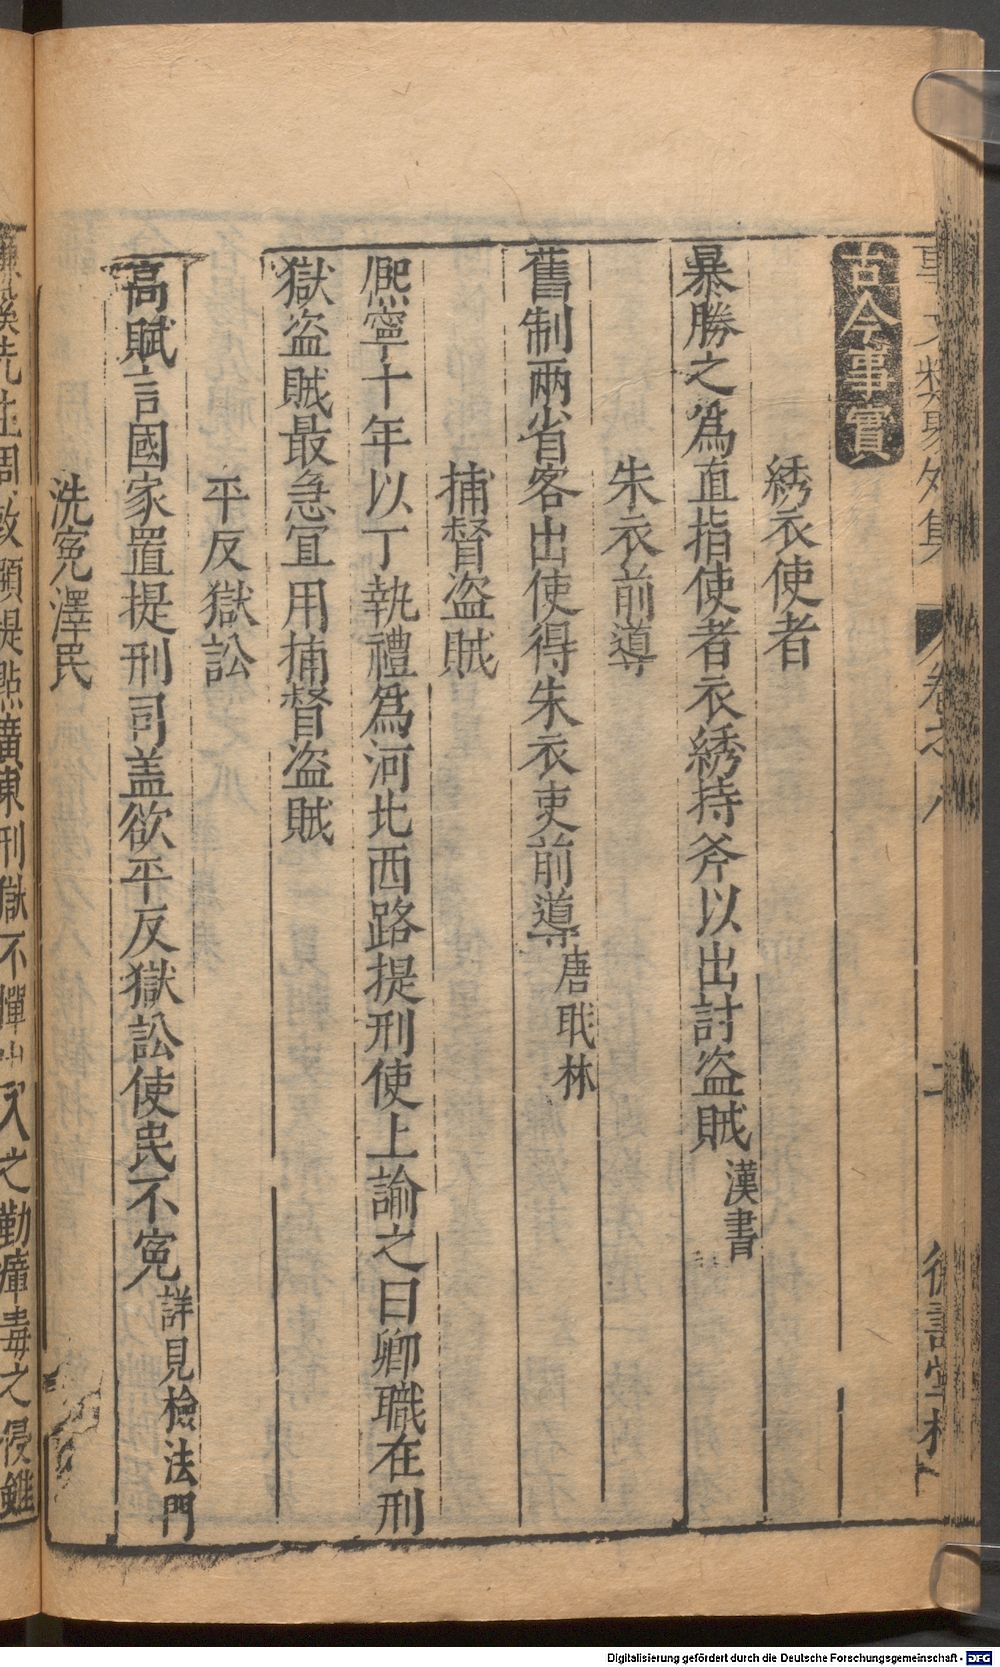 古今事實
綉衣使者
暴勝之爲直指使者衣綉持斧以出討盜賊漢書
朱衣前導
舊制兩省客出使得朱衣吏前導唐聀林
捕督盜賊
熈寧十年以丁執禮爲河北西路提刑使上諭之曰卿職在刑
獄盜賊最急冝用捕督盜賊
平反獄訟
高賦言國家置提刑司盖欲平反獄訟使民不寃詳見檢法門
洗寃澤民
先生周敦頥提㸃廣東刑獄不憚出入之勤瘴毒之侵雖
Digitalisierung gefördert durch die Deutsche Forschungsgemeinschaft - DFG